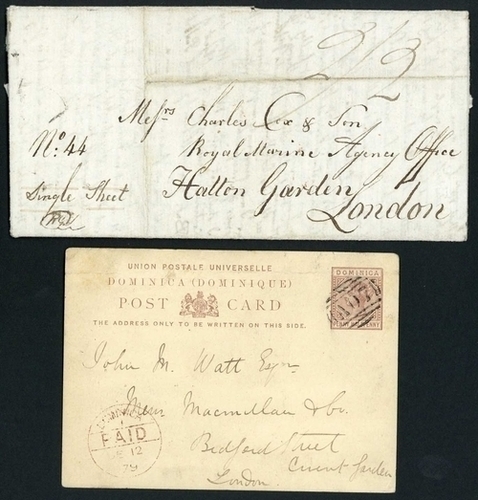 2/2
Messrs Charles Cox & Son
No. 44
Royal Marine Agency Office
Single Sheet
Hatton Garden
London
UNION POSTALE UNIVERSELLE
DOMINICA (DOMINIQUE)
POST CARD
THE ADDRESS ONLY TO BE WRITTEN ON THIS SIDE.
DOMINICA
A07
John M. Watt Esqre
Messrs Macmillan & Co.
Bedford Street
Covent Garden
London.
DOMINICA
PAID
12
79